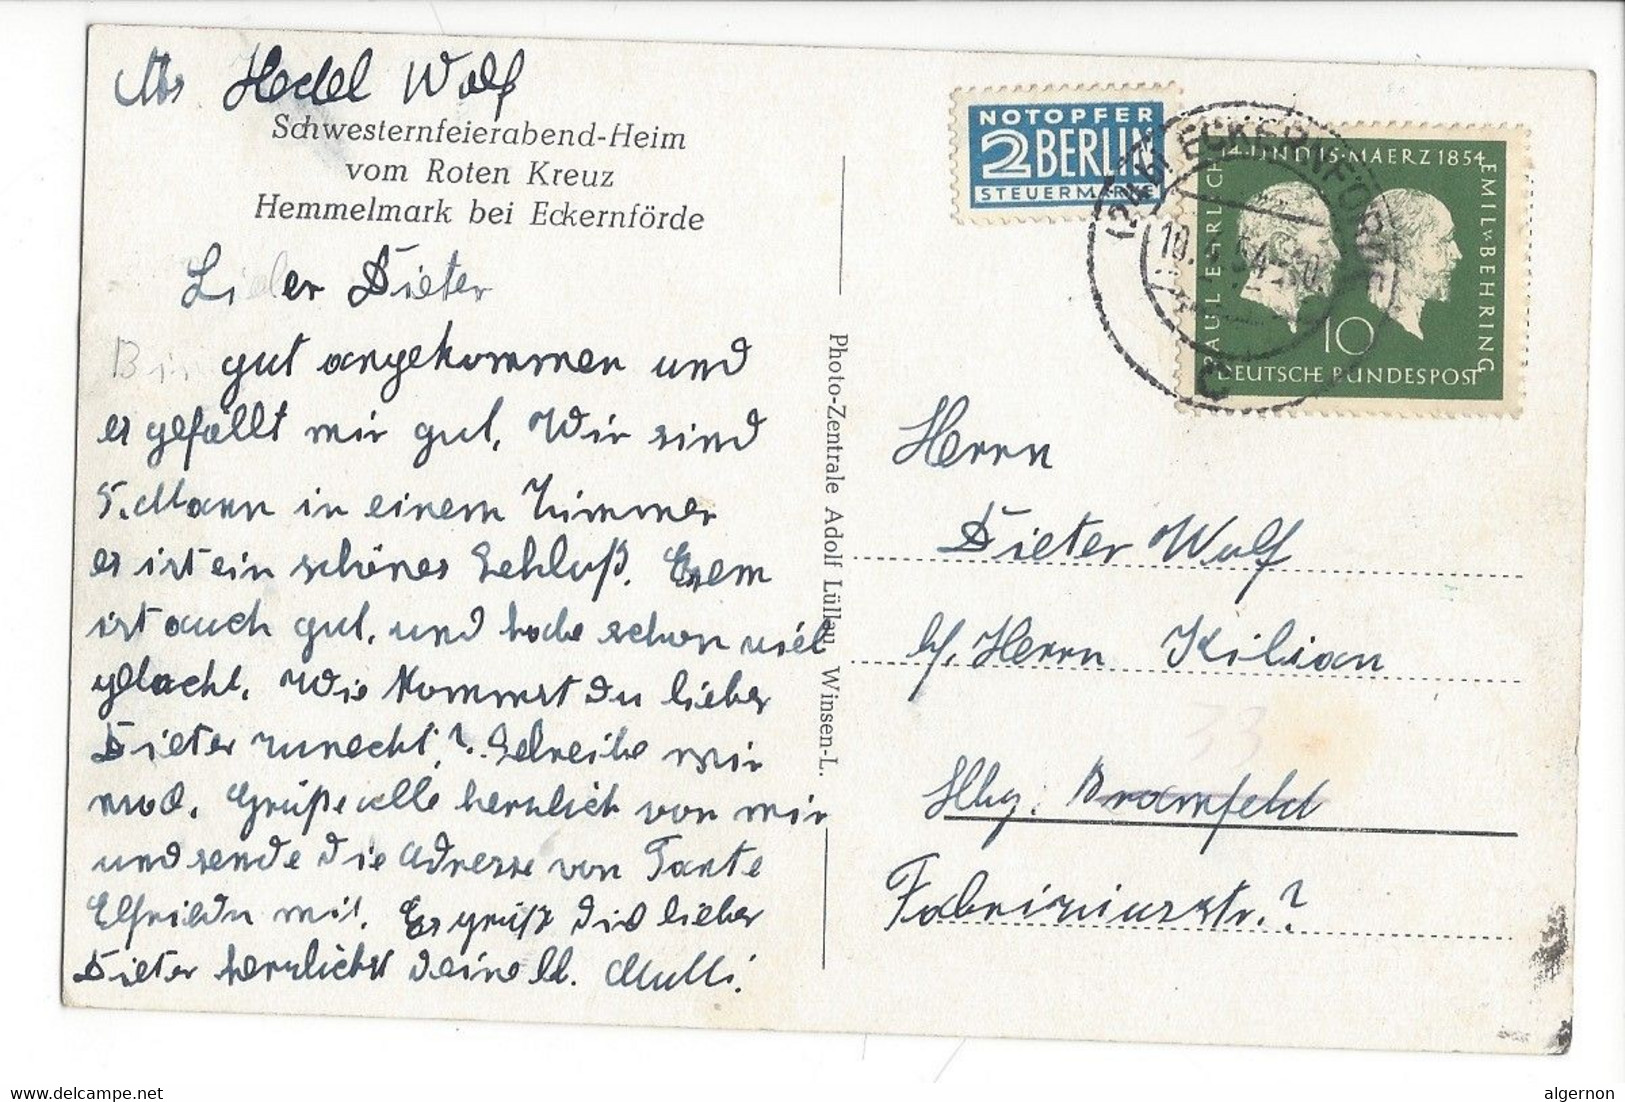 Abs Hedel Wolf
Schwesternfeierabend-Heim
vom Roten Kreuz
Hemmelmark bei Eckernförde
Lieber Dieter
Bin gut angekommen und
es gefällt mir gut. Wir sind
5. Mann in einem Zimmer
es ist ein schönes Schloß. Essen
ist auch gut, und habe schon viel
gelacht. Wie kommst du lieber
Dieter zurecht? Schreibe mir
mal. Grüße alle herzlich von mir
und sende die Adresse von Tante
Elfrieda mit. Es grüßt dich lieber
Dieter herzlichst deine lb. Mutti.
Photo-Zentrale Adolf Lüllau, Winsen-L.
NOTOPFER
2 BERLIN
STEUERMARKE
(24b) ECKERNFÖRDE
C
14. UND 15. MAERZ 1854
PAUL EHRLICH
EMIL v. BEHRING
10
DEUTSCHE BUNDESPOST
Herrn
Dieter Wulf
b/. Herrn Kilian
33
Hbg. Bramfeld
Fabriziusstr.?
algernon